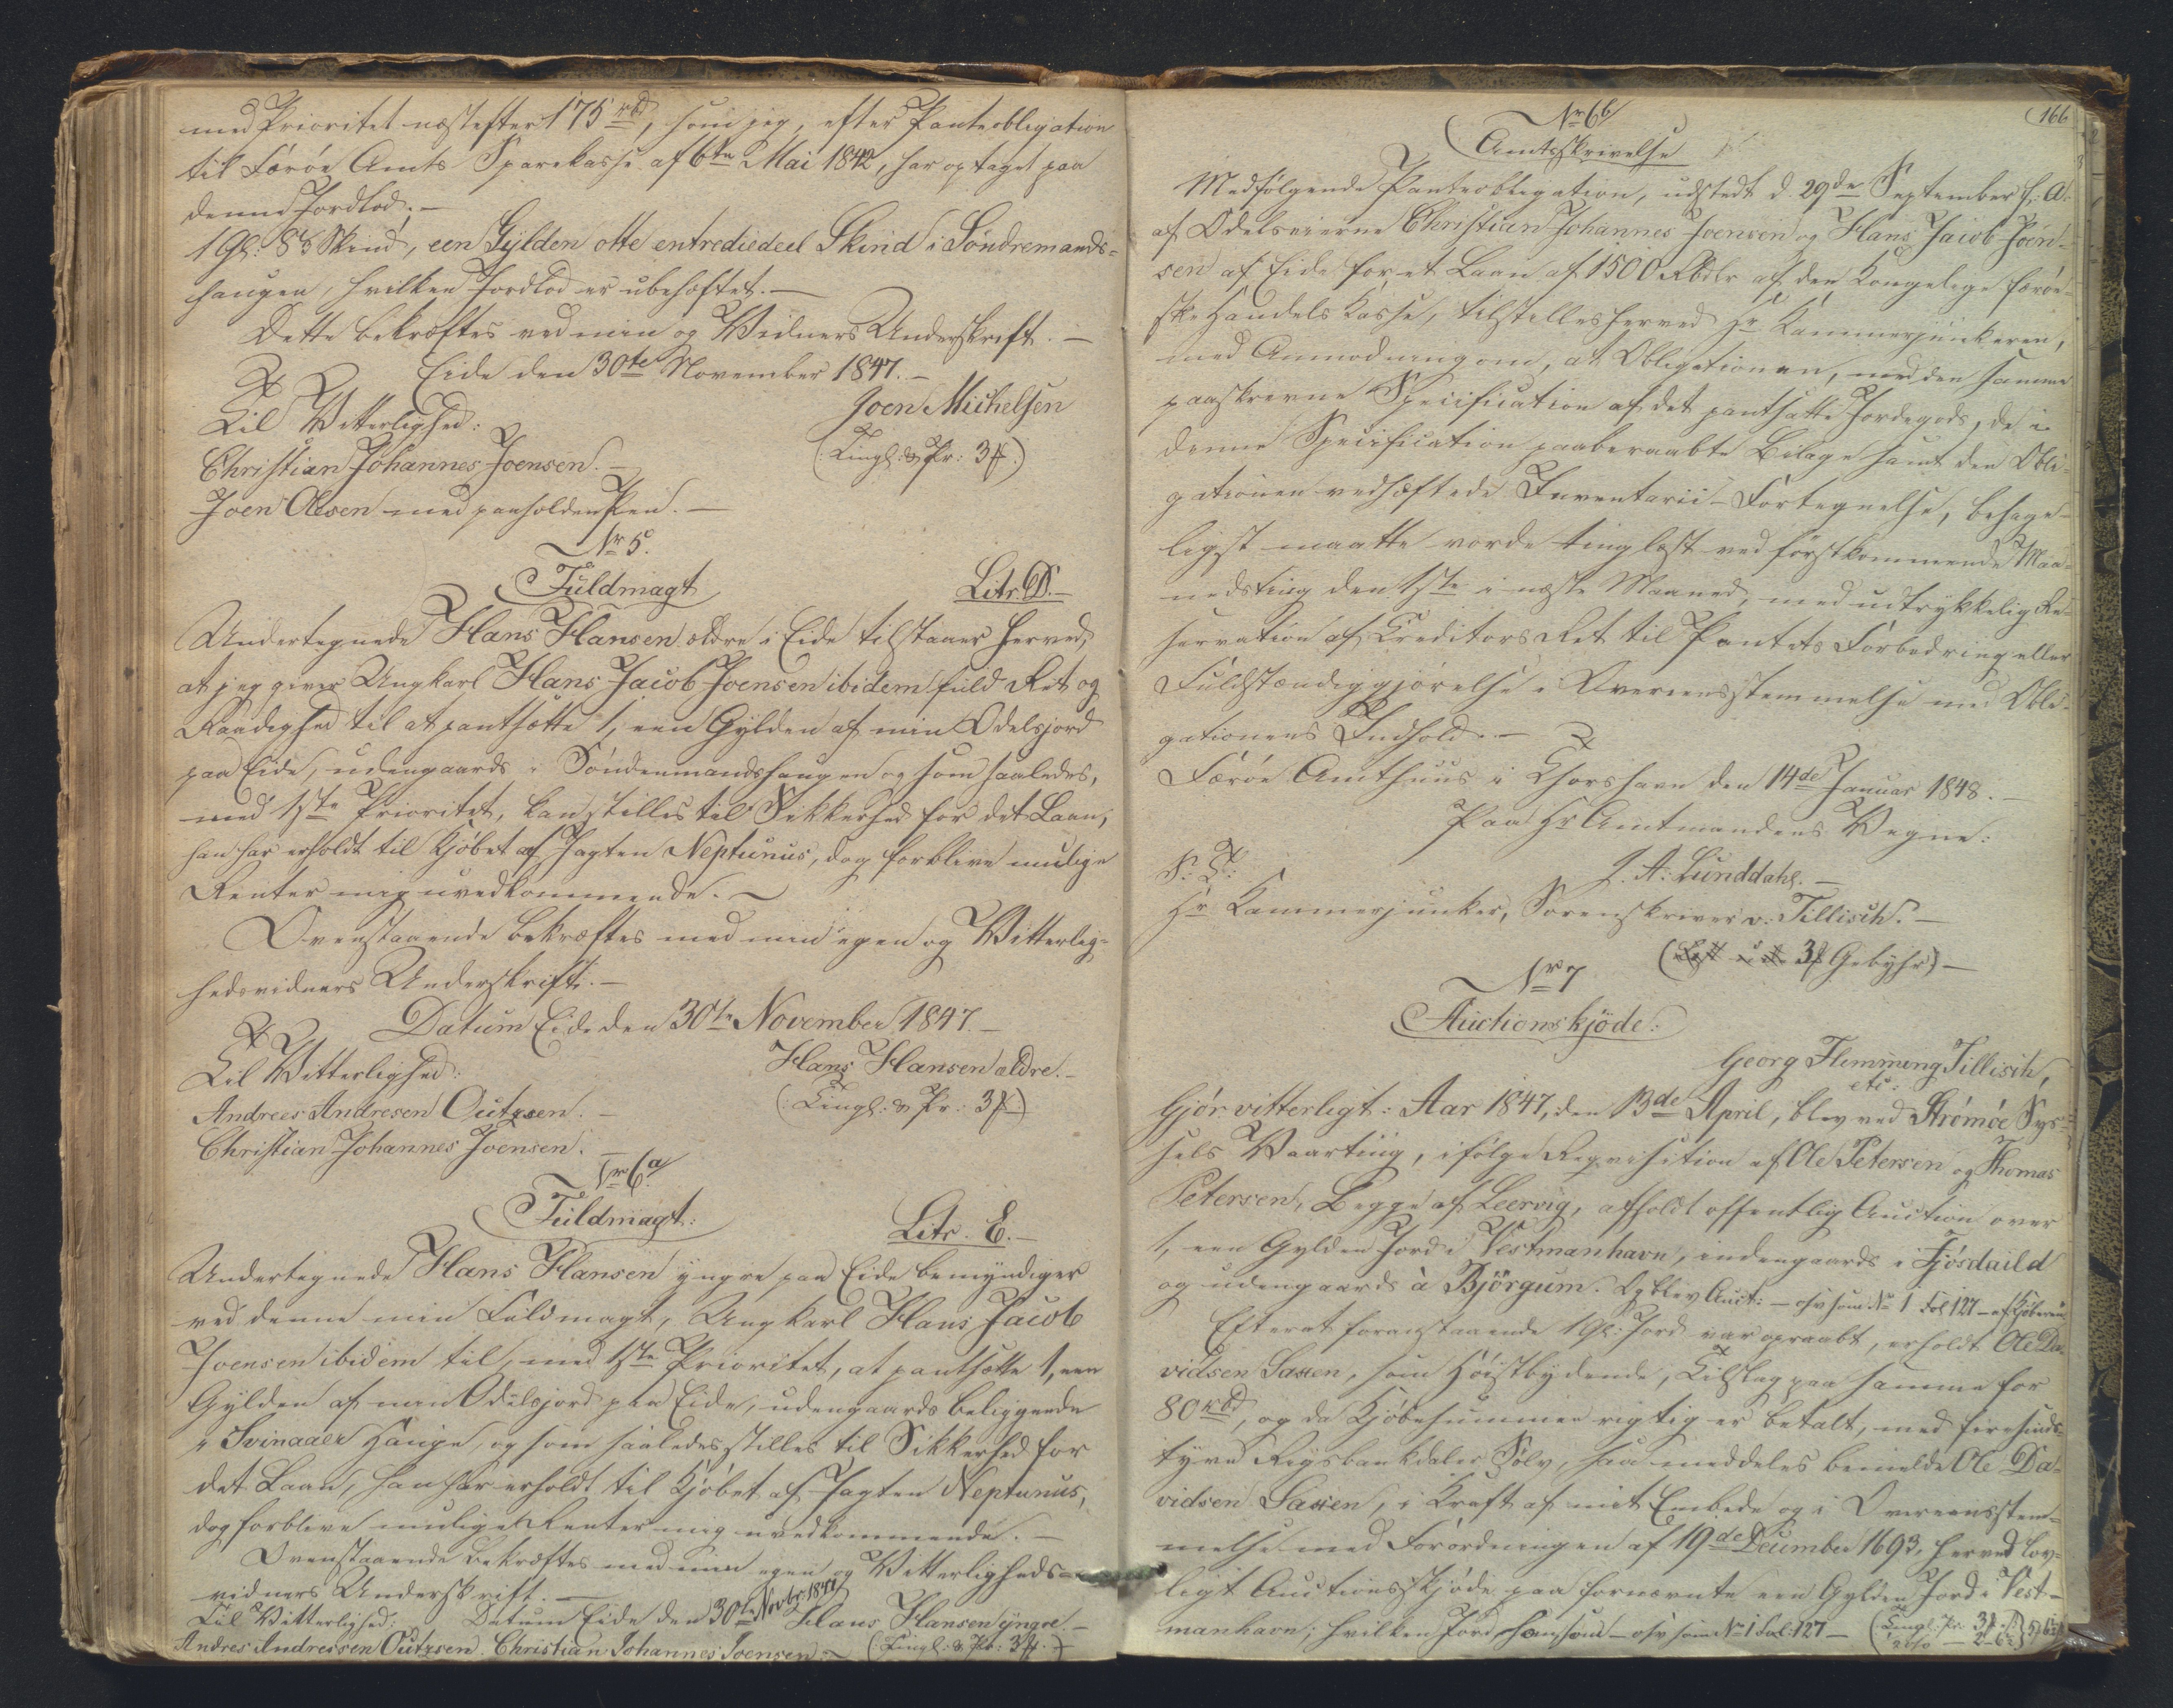 med Prioritet næstefter 175 rbd, som jeg, efter Panteobligation
til Færøe Amts Sparekasse af 6te Mai 1842, har optaget paa
denne Jordlod.—
1 Gl: 8⅓ Skind, een Gylden otte entrediedeel Skind i Söndremands=
haugen, hvilken Jordlod er ubehæftet.—
Dette bekræftes ved min og Vidners Underskrift.—
Eide den 30te November 1847.—
Til Vitterlighed:
Joen Michelsen
Christian Johannes Joensen.—
(: Tingl: & Pr: 3 ₰.)
Joen Olesen med paaholden Pen.—
Nr 5.
Fuldmagt
Litr. D.—
Undertegnede Hans Hansen ældre i Eide tilstaaer herved,
at jeg giver Ungkarl Hans Jacob Joensen ibidem fuld Ret og
Raadighed til at pantsætte 1, een Gylden af min Odelsjord
paa Eide, udengaards i Söndenmandshaugen og som saaledes,
med 1ste Prioritet, kan stilles til Sikkerhed for det Laan,
han har erholdt til Kjöbet af Jagten Neptunus, dog forblive mulige
Renter mig uvedkommende.—
Ovenstaaende bekræftes med min egen og Vitterlig=
hedsvidners Underskrift.—
Datum Eide den 30te November 1847.—
Til Vitterlighed:
Hans Hansen ældre.—
Andrees Andresen Outzsen.—
(: Tingl: & Pr: 3 ₰)
Christian Johannes Joensen.
Nr 6a
Fuldmagt:
Litr. E.—
Undertegnede Hans Hansen yngre paa Eide bemyndiger
ved denne min Fuldmagt, Ungkarl Hans Jacob
Joensen ibidem til, med 1ste Prioritet, at pantsætte 1, een
Gylden af min Odelsjord paa Eide, udengaards beliggende
i Svinaaer Hauge, og som saaledes stilles til Sikkerhed for
det Laan, han har erholdt til Kjöbet af Jagten Neptunus,
dog forblive mulige Renter mig uvedkommende.—
Ovenstaaende bekræftes med min egen og Vitterligheds=
vidners Underskrift.—
Til Vitterlighed: Datum Eide den 30te Novbr: 1847 Hans Hansen yngre.—
Andres Andressen Outzsen. Christian Johannes Joensen.— (: Tingl: & Pr: 3 ₰.)
166
Nr 6b
Amtsskrivelse
Medfølgende Panteobligation, udstedt d. 29de September f: A:
af Odelseierne Christian Johannes Joensen og Hans Jacob Joen-
sen af Eide for et Laan af 1500 Rbdlr af den Kongelige færöe-
ske Handels Kasse, tilstilles herved Hr Kammerjunkeren,
med Anmodning om, at Obligationen, med den samme
paaskrevne Specification af det pantsatte Jordegods, de i
denne Specification paaberaabte Bilage samt den Obli-
gationen vedhæftede Inventarii-Fortegnelse, behage-
ligst maatte vorde tinglæst ved förstkommende Maa-
nedsting den 1ste i næste Maaned, med udtrykkelig Re-
servation af Creditors Ret til Pantets Forbedring eller
Fuldstændiggjörelse i Overeensstemmelse med Obli-
gationens Indhold.—
Færöe Amthuus i Thorshavn den 14de Januar 1848.—
Paa Hr Amtmandens Vegne:
J. A: Lunddahl.—
S: T:
Hr Kammerjunker, Sorenskriver v: Tillisch.—
3 ₰ Gebyhr)—
Nr 7
Auctionskjöde:
Georg Flemming Tillisch,
etc:
Gjör vitterligt: Aar 1847, den 13de April, blev ved Strömöe Sys-
sels Vaarting, ifölge Reqvisition af Ole Petersen og Thomas
Petersen, Begge af Leervig, afholdt offentlig Auction over
1, een Gylden Jord i Vestmanhavn, indengaards i Fjósdaild
og udengaards à Björgum. Og blev Auct:— osv som No 1 Fol 127 — af Kjöberen
Efterat foranstaaende 1 Gl: Jord var opraabt, erholdt Ole Da-
vidsen Saxen, som Höistbydende, Tilslag paa samme for
80 rbd, og da Kjöbesummen rigtig er betalt, med firesinds-
tyve Rigsbankdaler Sölv, saa meddeles bemeldte Ole Da-
vidsen Saxen, i Kraft af mit Embede og i Overeensstem-
melse med Forordningen af 19de December 1693, herved lov-
ligt Auctionsskjöde paa fornævnte een Gylden Jord i Vest-
manhavn; hvilken Jord han som — osv som No 1 Fol: 127 —